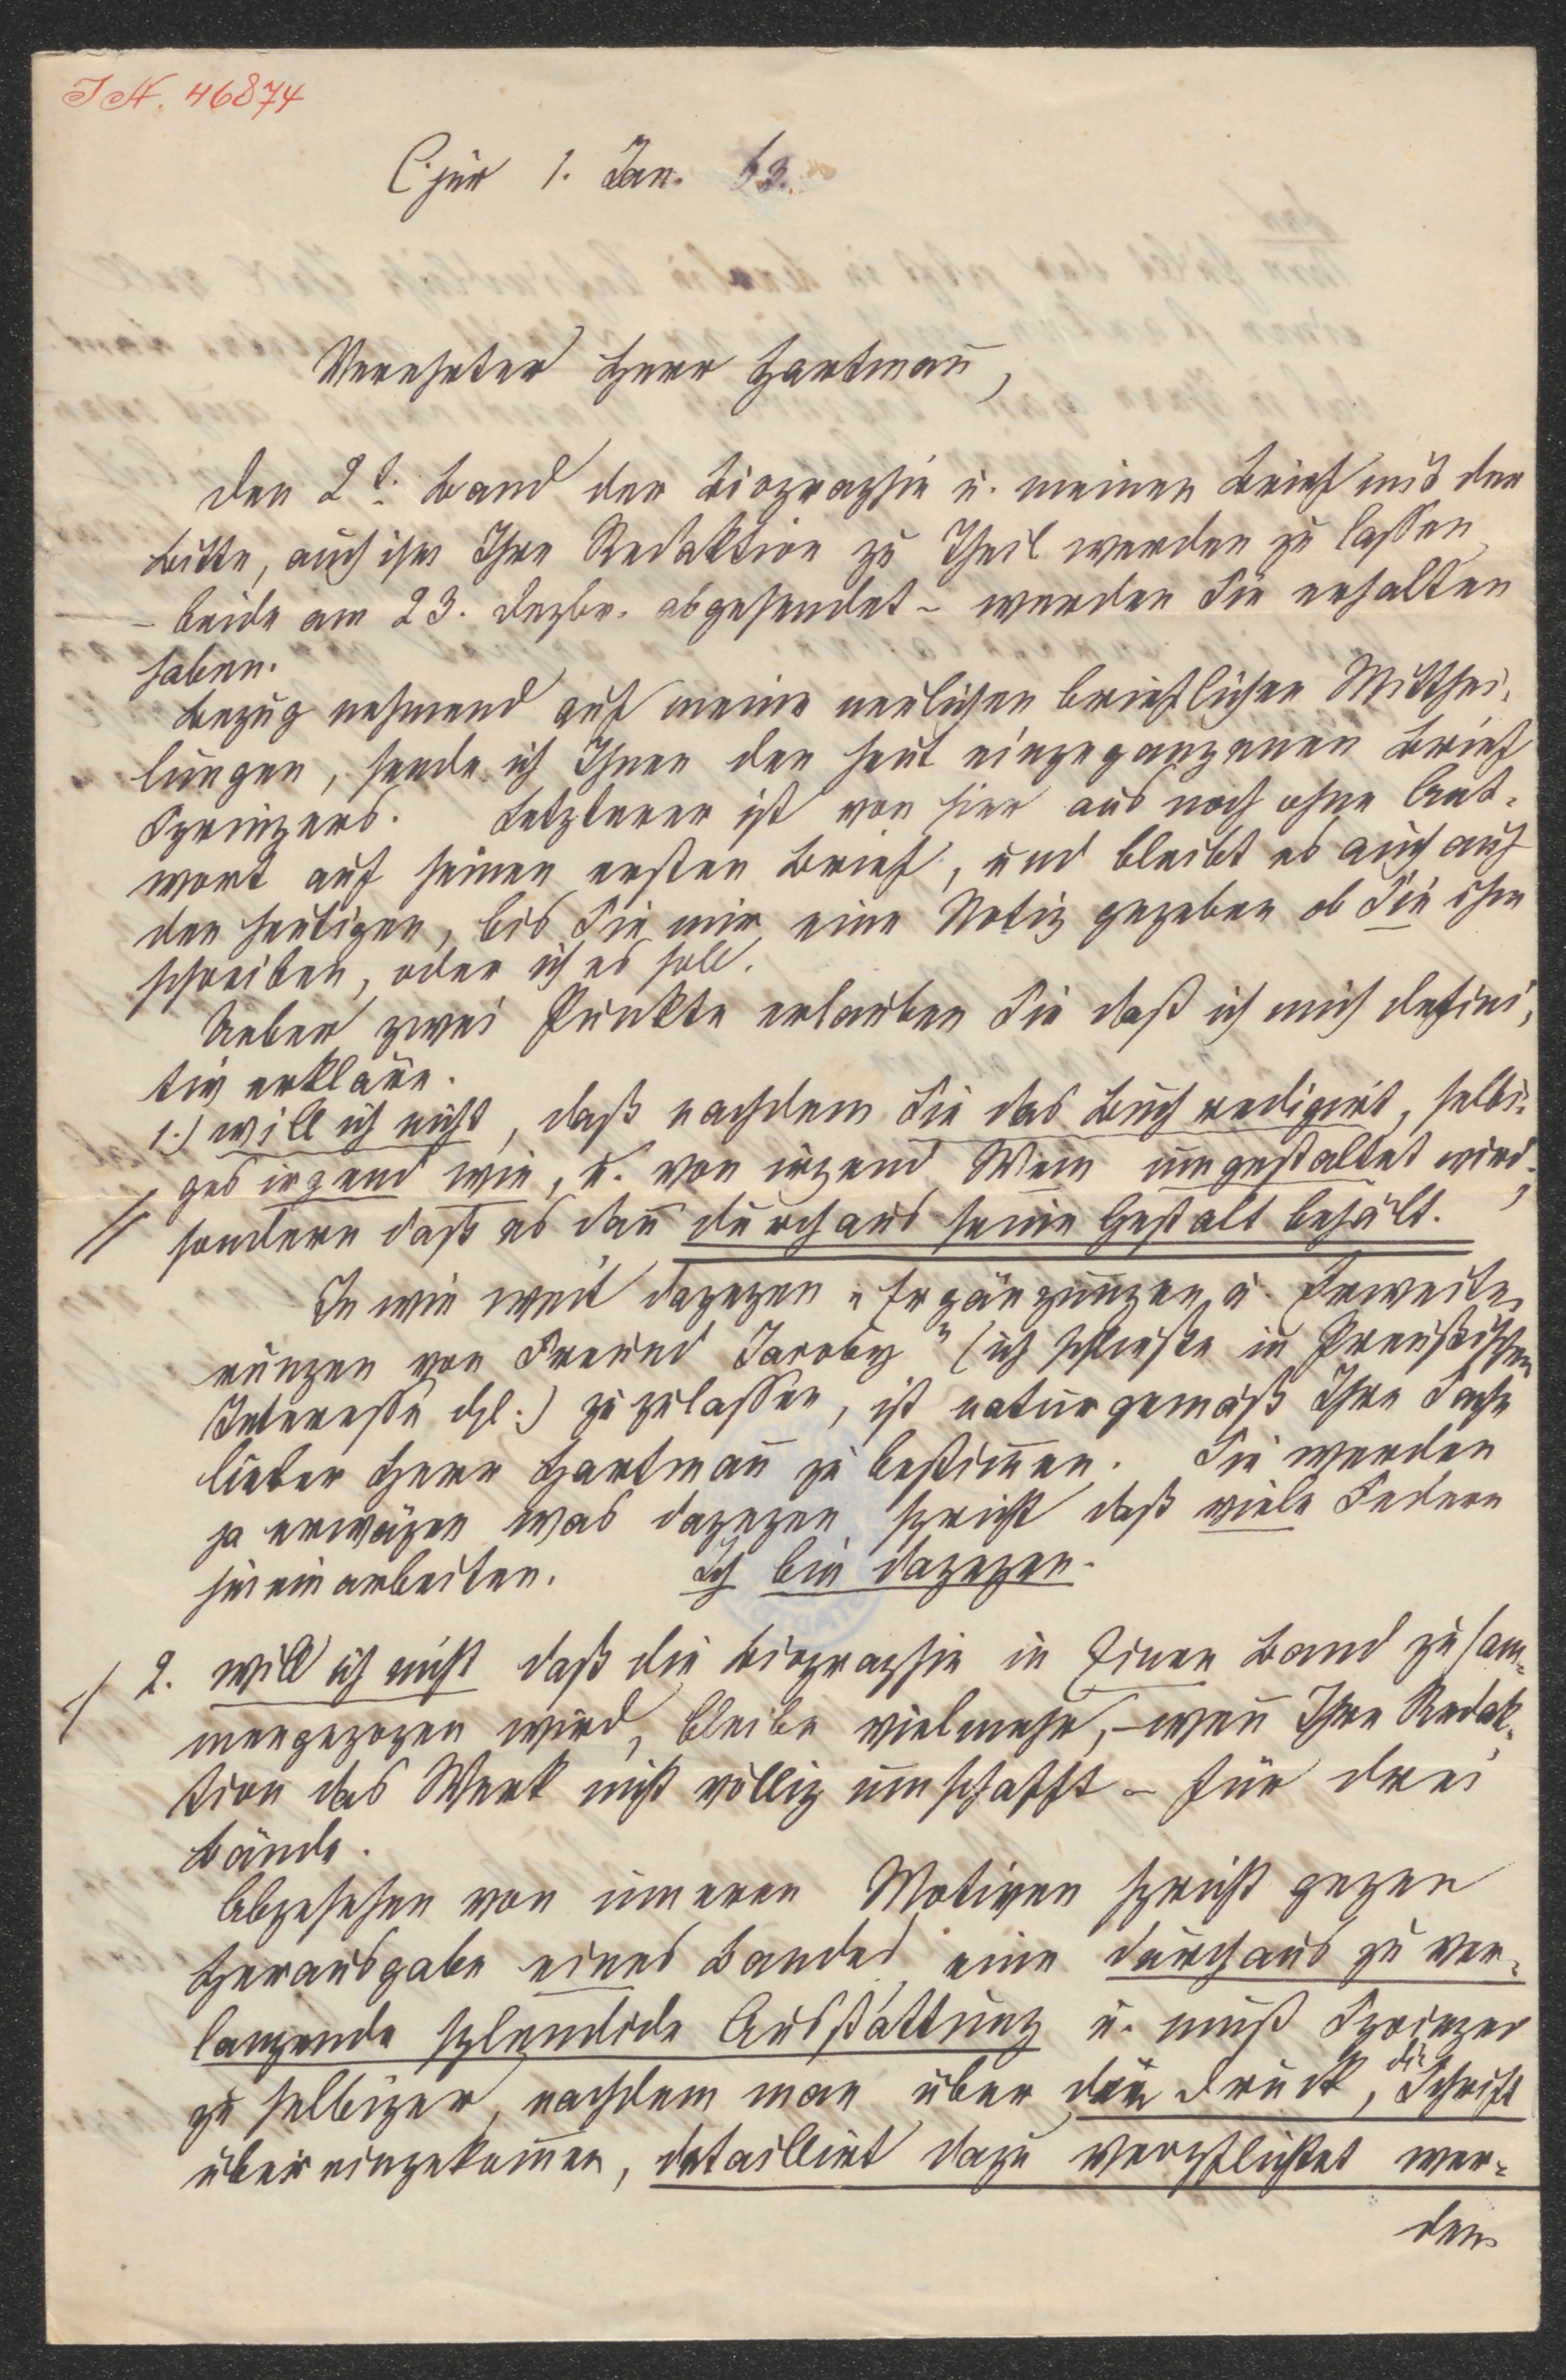 I N. 46874
Chur 1. Jan. 63.
Verehrter Herr Hartmañ,
den 2t. Band der Biographie u. meinen Brief mit der
Bitte, auch ihm Ihre Redaktion zu Theil werden zu lassen
– beide am 23. Dezbr. abgesendet – werden Sie erhalten
haben.
Bezug nehmend auf meine neulichen brieflichen Mitthei-
lungen, sende ich Ihnen den heut eingegangenen Brief
Springers. Letzterer ist von hier aus noch ohne Ant-
wort auf seinen ersten Brief, und bleibt es auch auf
den heutigen, bis Sie mir eine Notiz gegeben ob Sie ihm
schreiben, oder ich es soll.
Ueber zwei Punkte erlauben Sie daß ich mich defini-
tiv erkläre.
1.) will ich nicht, daß nachdem Sie das Buch redigirt, selbi-
ges irgend wie, u. von irgend Wem umgestaltet wird,
sondern daß es dañ durchaus seine Gestalt behält.
In wie weit dagegen „Ergänzungen u. Erweite-
rungen von Freund Jacoby" (ich schließe in Preußischem
Interesse dgl.) zuzulassen, ist naturgemäß Ihre Sache
lieber Herr Hartmañ zu bestim̄en. Sie werden
ja erwägen was dagegen spricht daß viele Federn
hineinarbeiten. Ich bin dagegen.
2. will ich nicht daß die Biographie in Einen Band zusam-
mengezogen wird, bleibe vielmehr, – weñ Ihre Redak-
tion das Werk nicht völlig umschafft – für drei
Bände.
Abgesehen von inneren Motiven spricht gegen
Herausgabe eines Bandes, eine durchaus zu ver-
langende splendide Ausstattung u. muß Springer
zu selbiger, nachdem man über den Druck, die Schrift
übereingekom̄en, detaillirt dazu verpflichtet wer-
den